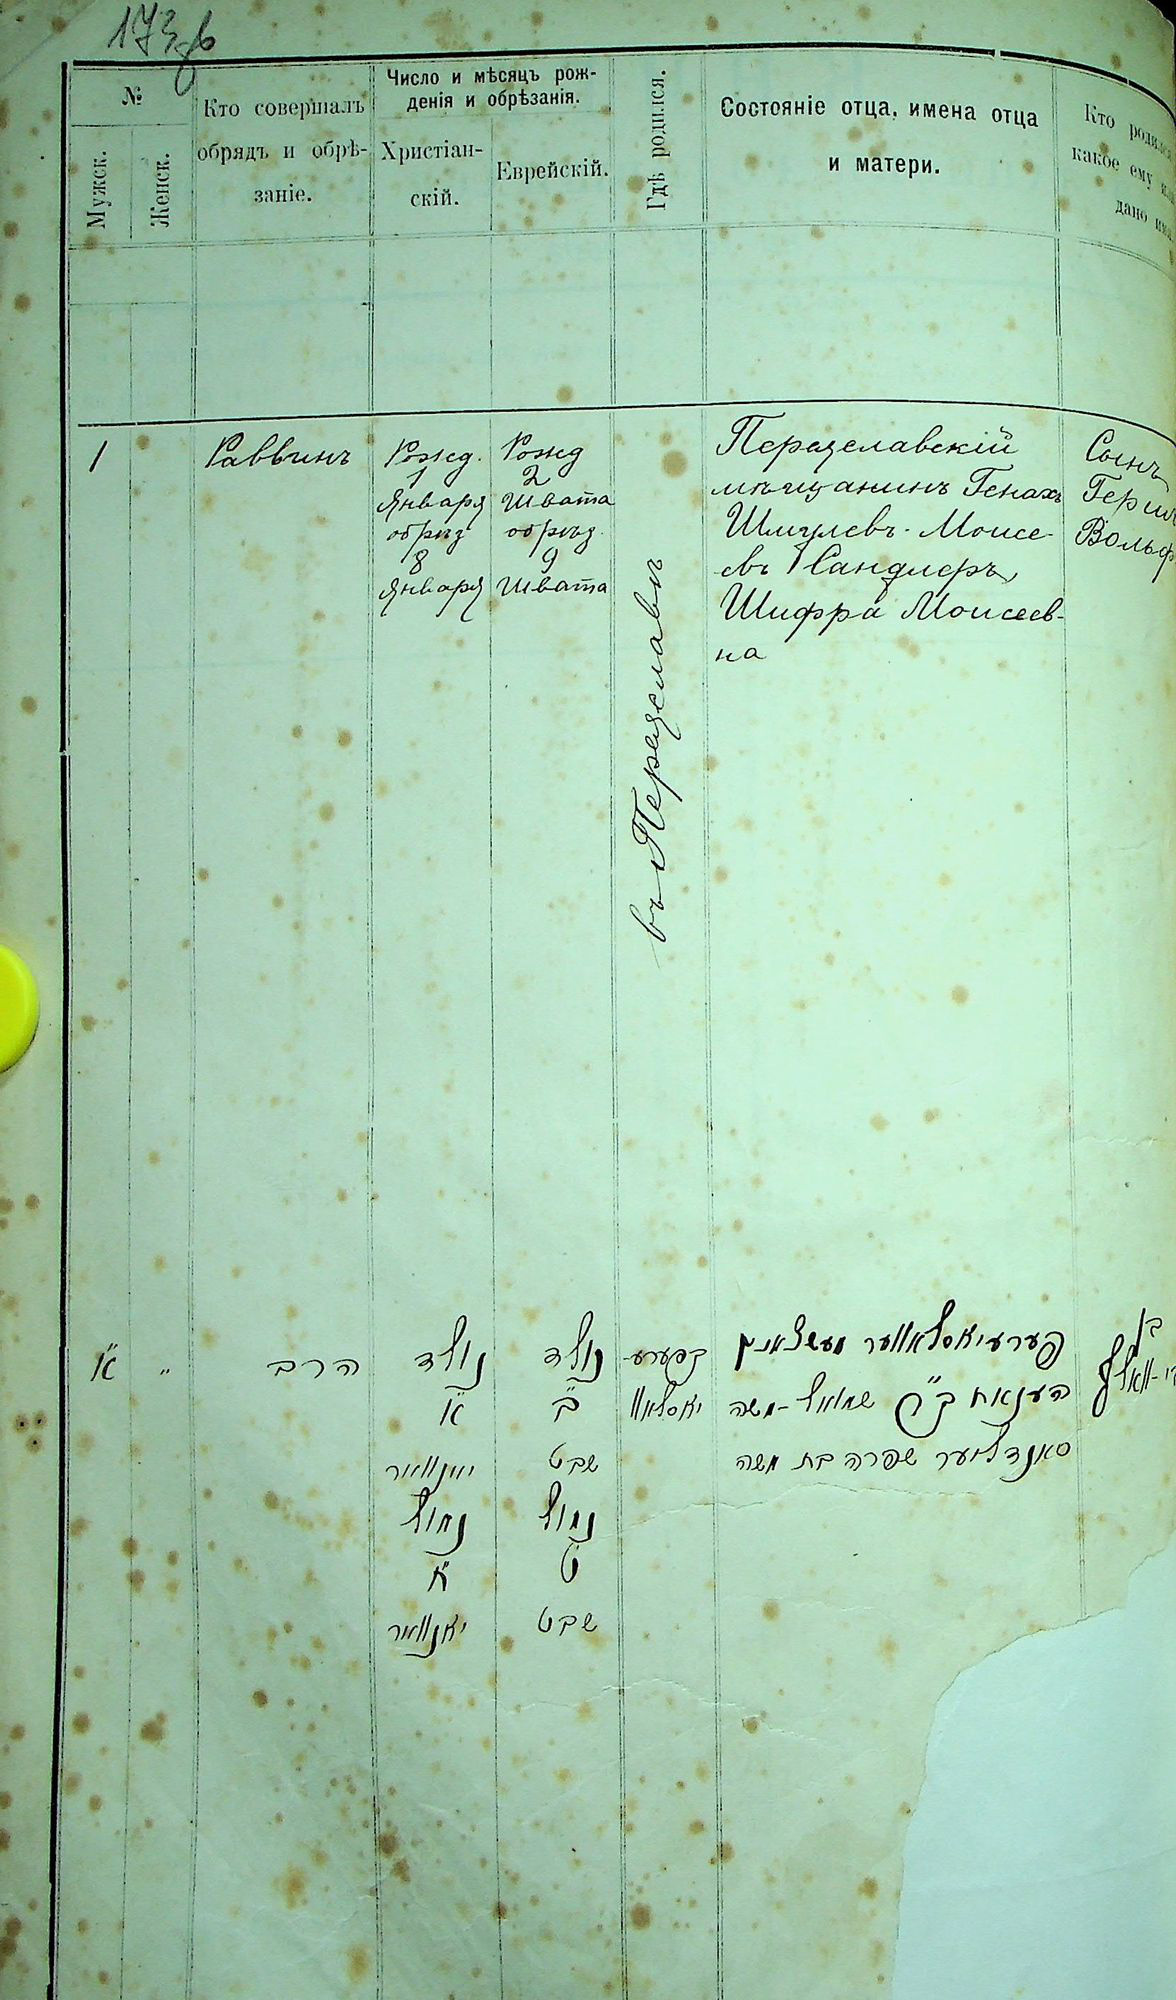 173
№
Мужск.
Женск.
Кто совершалъ
обрядъ и обрѣ-
заніе.
Число и мѣсяцъ рож-
денія и обрѣзанія.
Христіан-
скій.
Еврейскій.
Гдѣ родился.
Состояніе отца, имена отца
и матери.
Кто
какое ему
дано
1
Раввинъ
Рожд.
1
Января
обрѣз
8
Января
Рожд
2
Швата
обрѣз.
9
Швата
въ Переяславѣ
Переяславскій
мѣщанинъ Генахъ
Шмулевъ-Моисе-
евъ Сандлеръ,
Шифра Моисеев-
на
Сынъ
Вольф
א
"
הרב
נולד
א
יאנוואר
נמול
ח
יאנוואר
נולד
ב
שבט
נמול
ט
שבט
בפערע-
יאסלאוו
פערעיאסלאווער מעשצאנין
הענאח ב"ר שמואל-משה
סאנדליער שפרה בת משה
בן